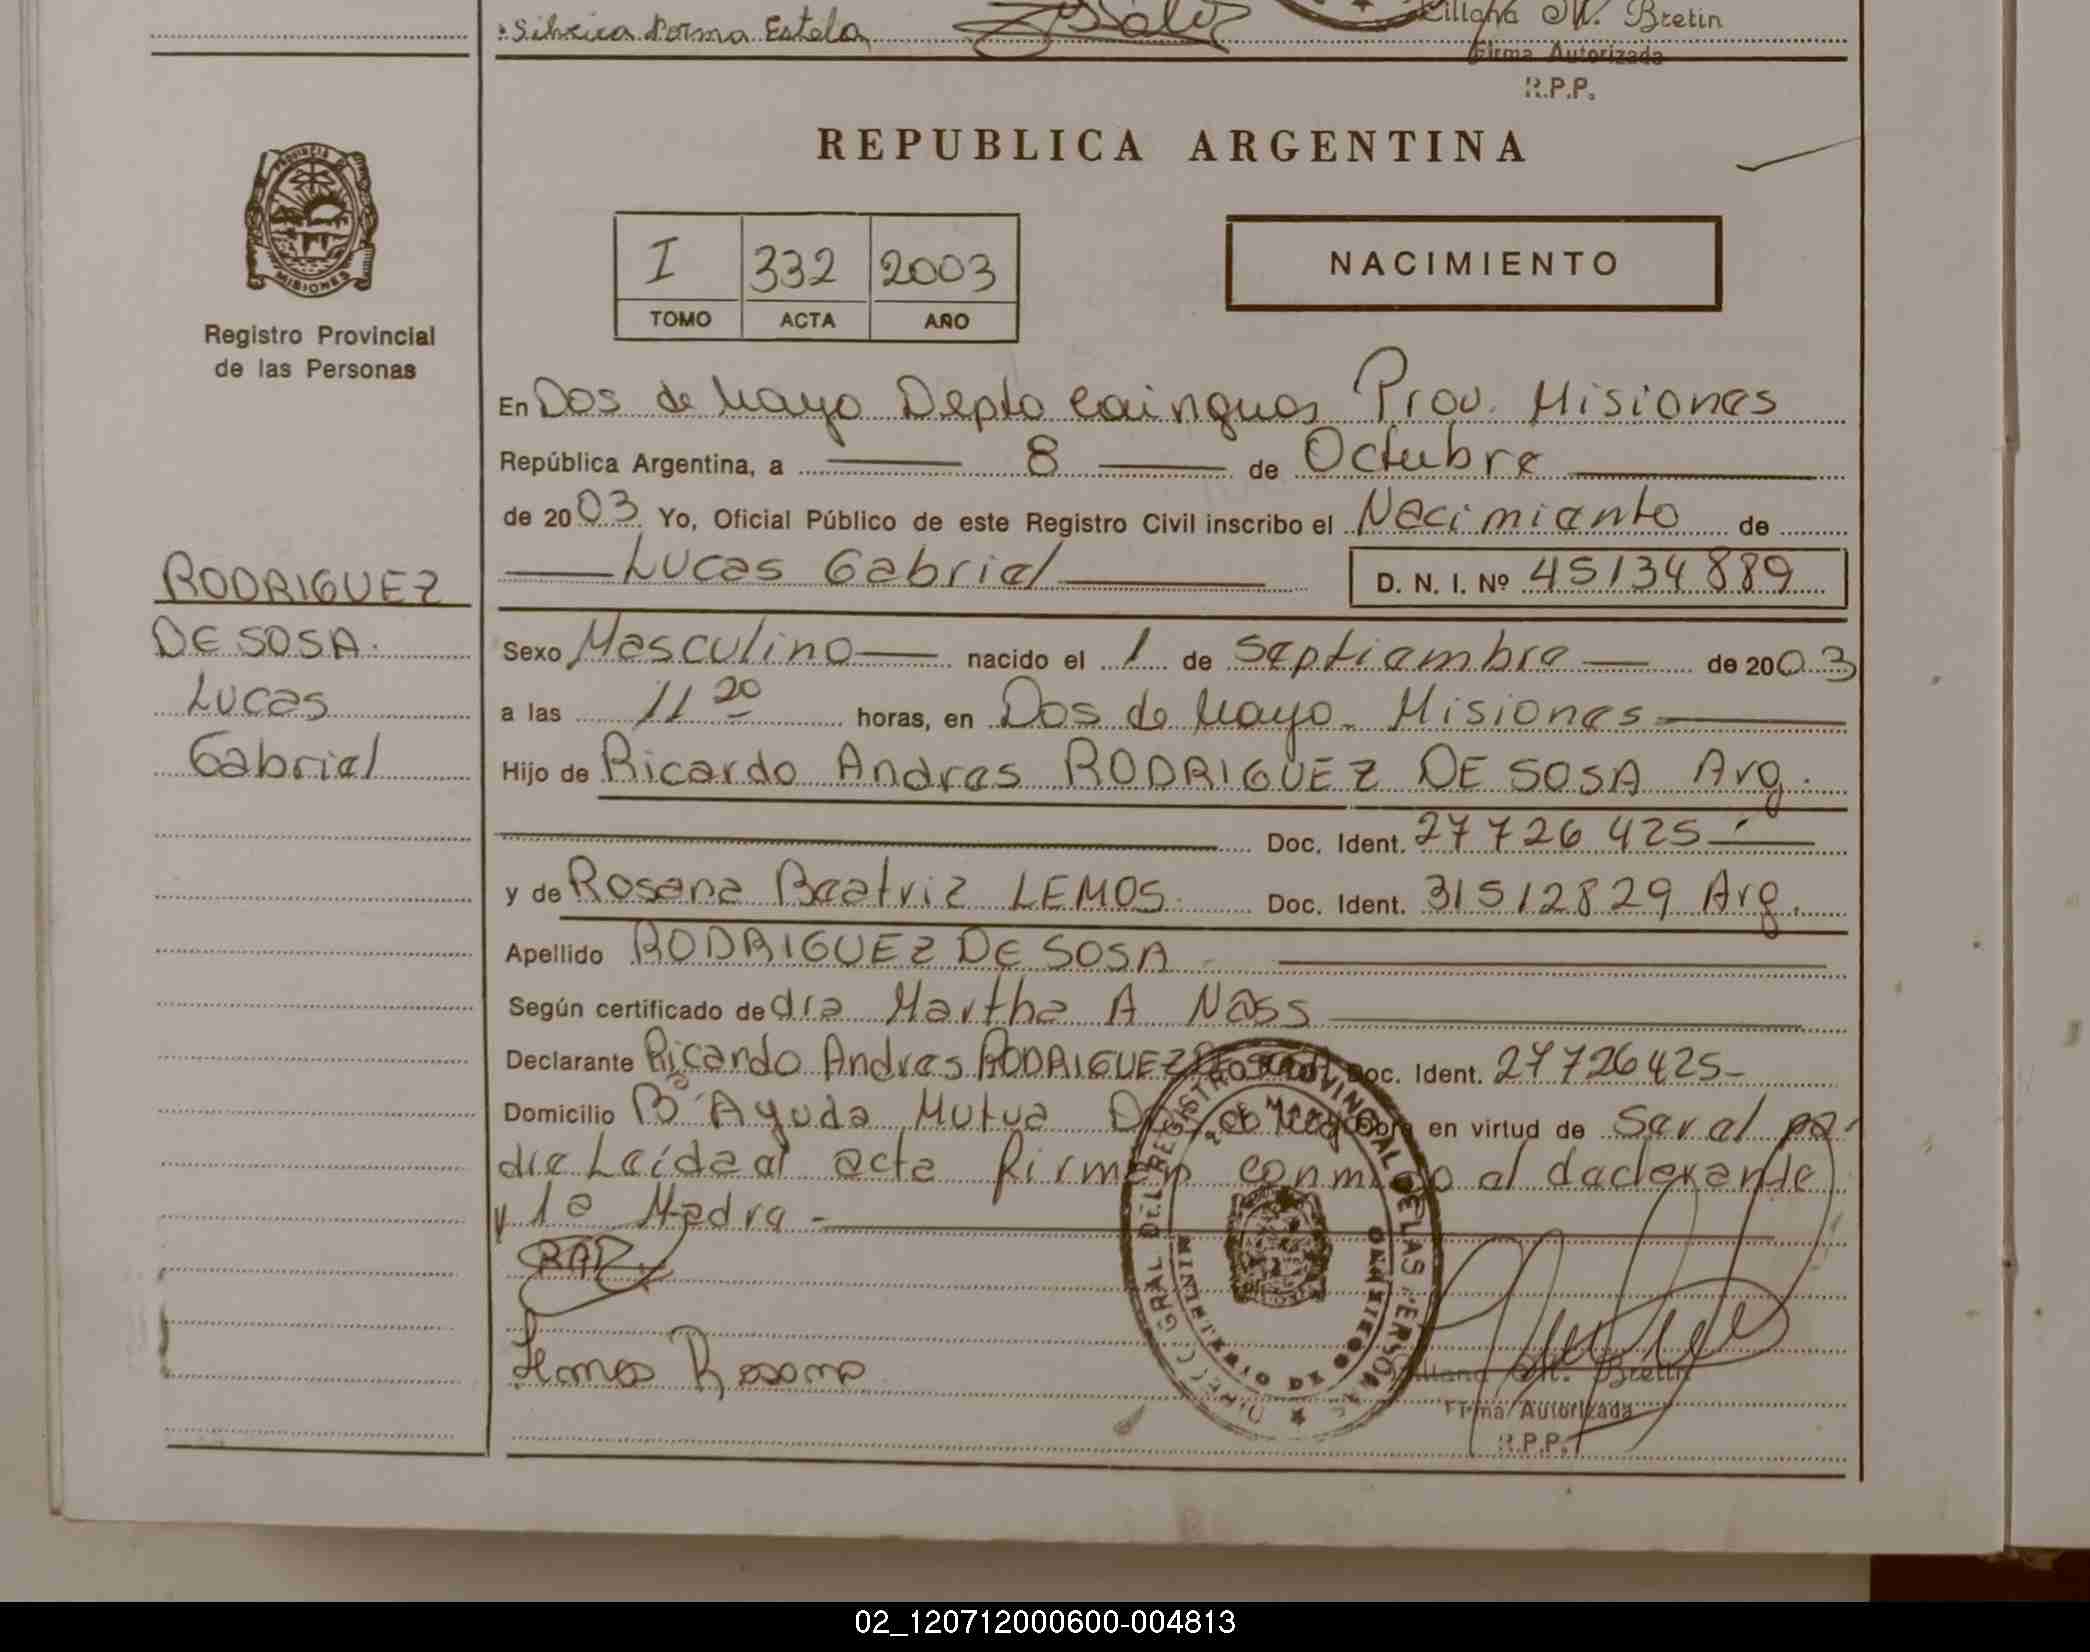 Silveira Norma Estela
M. Bretin
Firma Autorizada
R.P.P.
REPUBLICA ARGENTINA
PROVINCIA DE
MISIONES
Registro Provincial
de las Personas
I 332 2003
TOMO ACTA AÑO
NACIMIENTO
En Dos de Mayo Depto Cainguas Prov. Misiones
República Argentina, a 8 de Octubre
de 2003 Yo, Oficial Público de este Registro Civil inscribo el Nacimiento de
Lucas Gabriel D. N. I. Nº 45134889
RODRIGUEZ
DE SOSA.
Lucas
Gabriel
Sexo Masculino nacido el 1 de Septiembre de 2003
a las 11 20 horas, en Dos de Mayo - Misiones
Hijo de Ricardo Andres RODRIGUEZ DE SOSA Arg.
Doc. Ident. 27726425
y de Rosana Beatriz LEMOS. Doc. Ident. 31512829 Arg.
Apellido RODRIGUEZ DE SOSA
Según certificado de dra Martha A Nass
Declarante Ricardo Andres RODRIGUEZ DE SOSA Doc. Ident. 27726425-
Domicilio Bº Ayuda Mutua Dos de Mayo Obra en virtud de Ser el pa-
dre Leida el acta firman conmigo el declarante
y la Madre -
RAR
Lemos Rosana
DIRECC. GRAL DEL REGISTRO PROVINCIAL DE LAS PERSONAS
2 DE MAYO
MINISTERIO DE GOBIERNO
M. Bretin
Firma Autorizada
R.P.P.
02_120712000600-004813